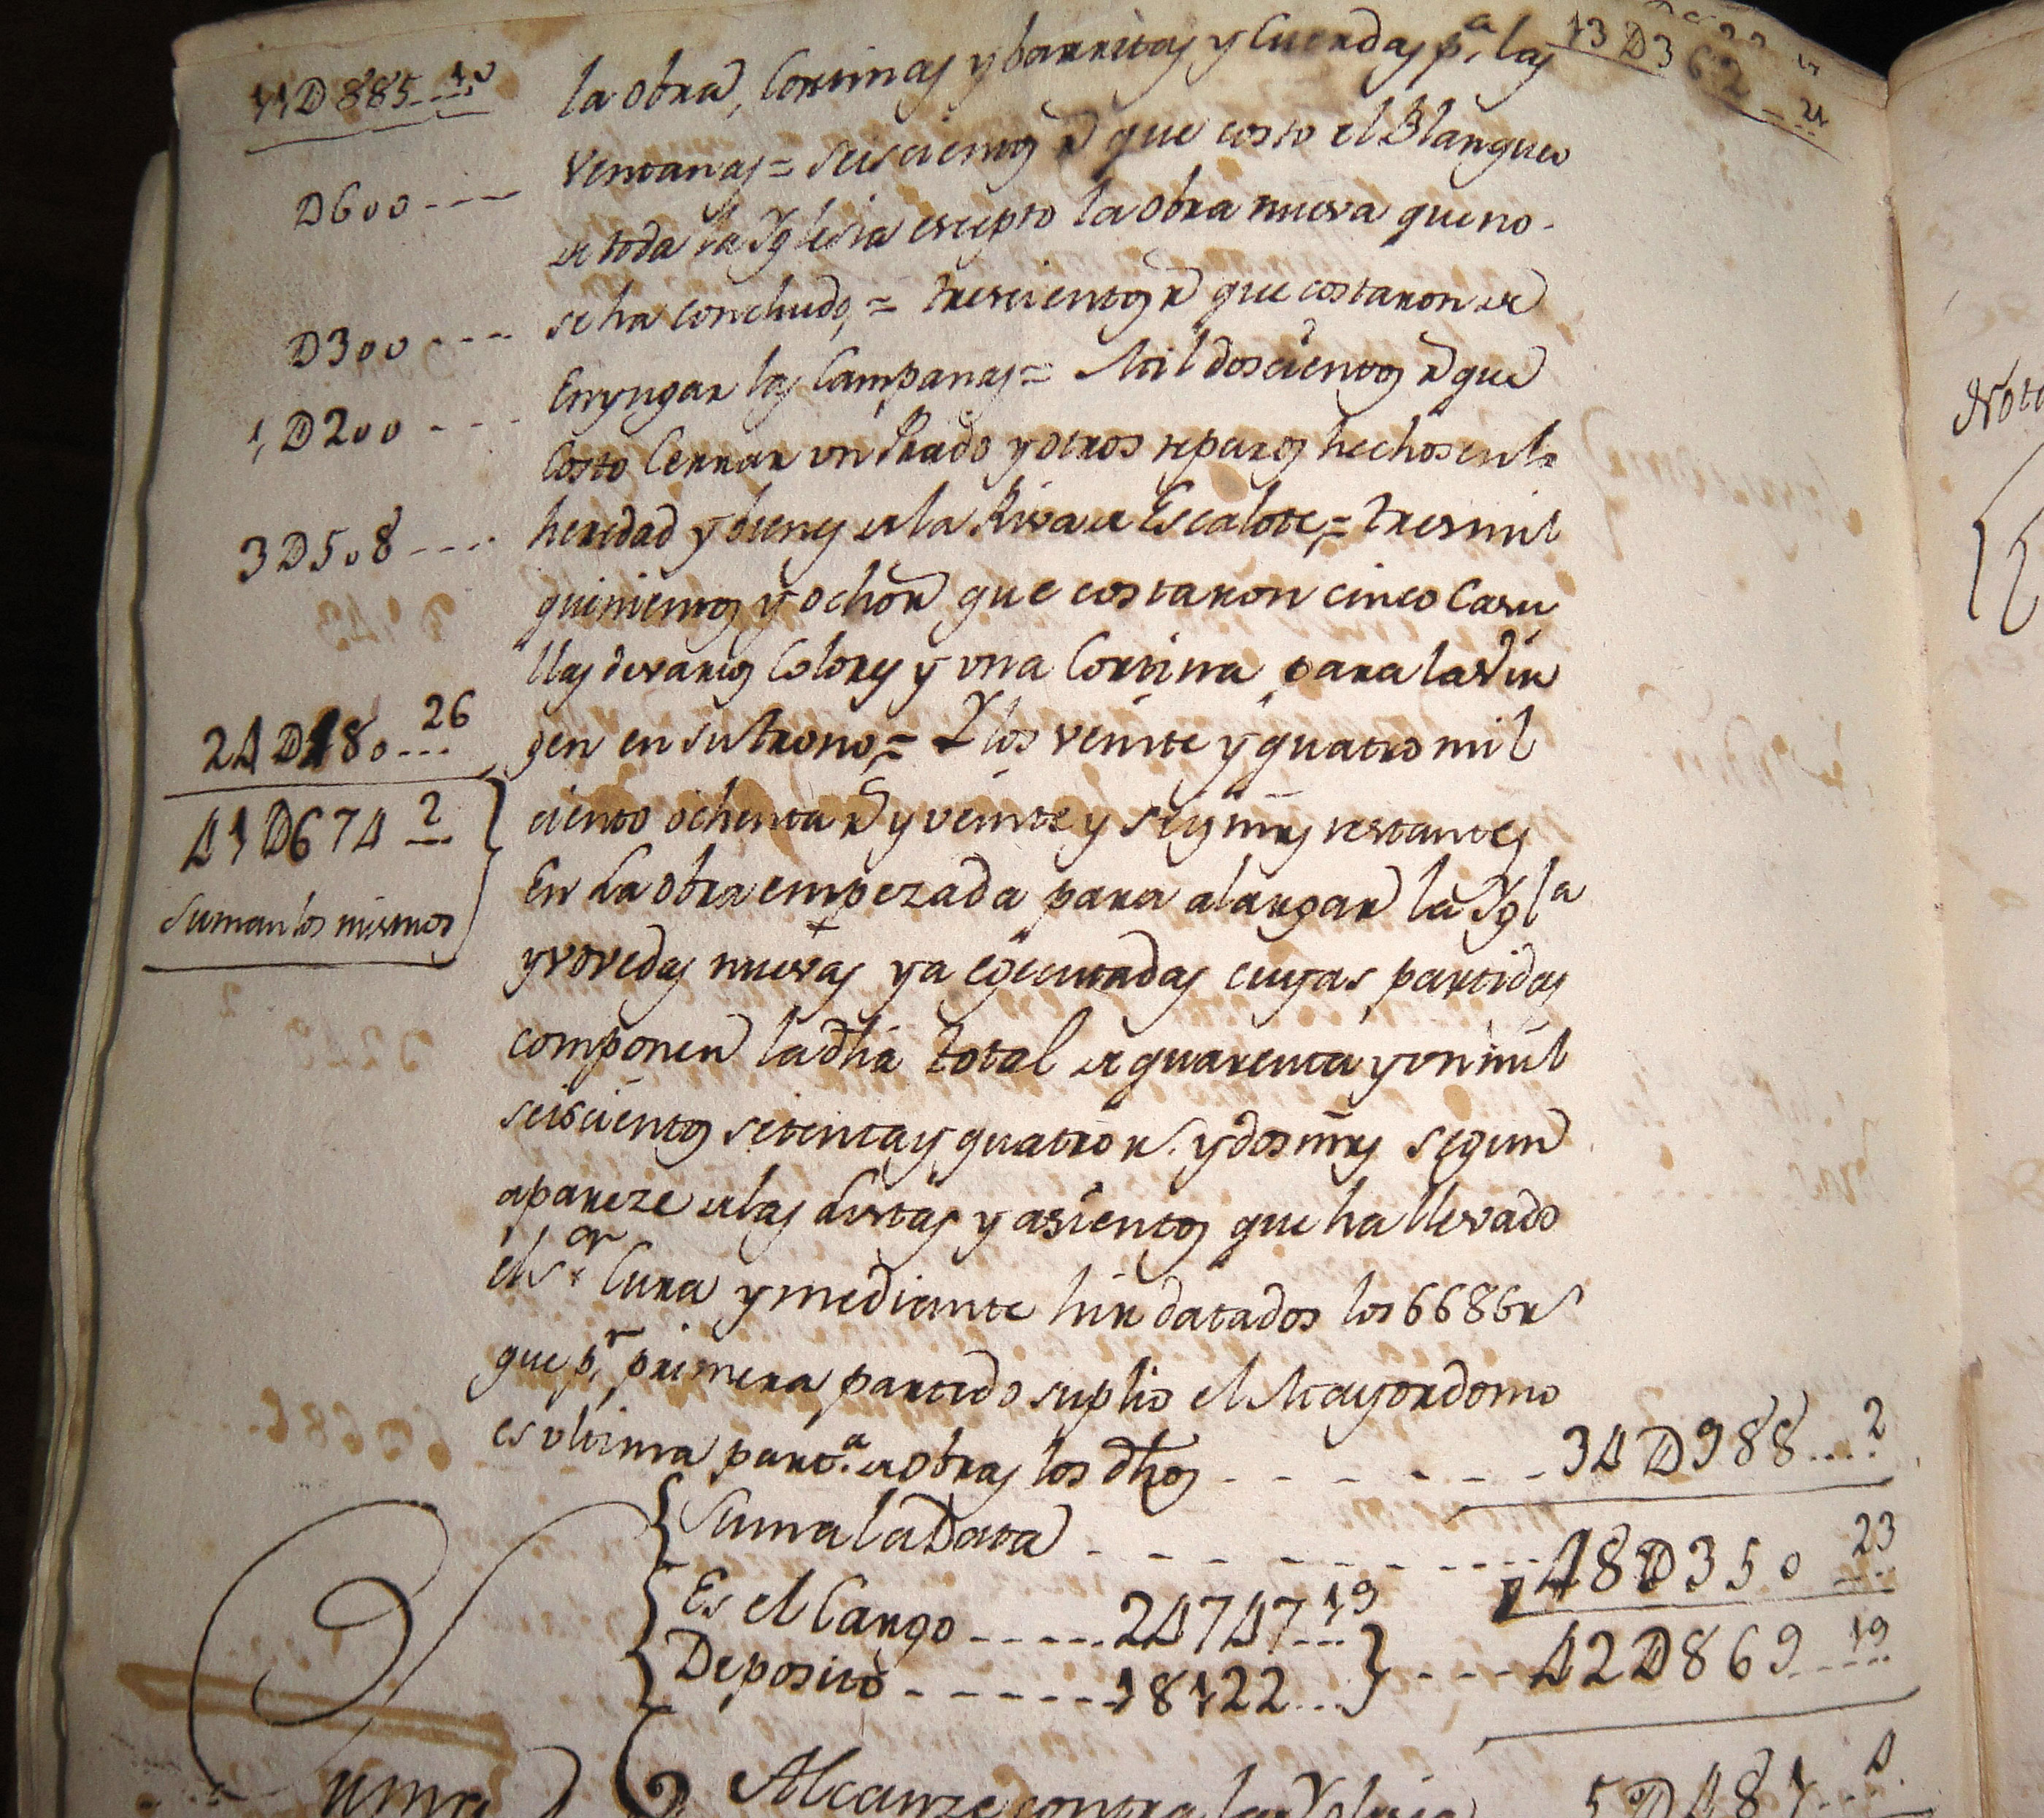 11D885...10
la obra, Cortinas y barritas y Cuerdas pa. las
13D362...21
ventanas = seiscientos r que costo el Blanqueo
D600----
de toda la Yglesia escepto la obra nueva que no.
se ha concluido, = trescientos r que costaron de
D300----
Enyugar las Campanas = Mil doscientos r que
1,D200----
Costo Cerrar un Prado y otros reparos hechos en la
heredad y bienes de la Riva de Escalote, = tres mil
3D508----
quinientos y ocho r que costaron cinco Casu
llas de varios Colores y una Cortina para la Vir
24D180...26
gen en su trono, = Y los veinte y quatro mil
41D674 2
ciento ochenta r y veinte y seis mrs restantes
En La obra empezada para alargar la Ygla
Suman los mismos
y vovedas nuevas ya egecutadas cuyas partidas
componen la dha total de quarenta y un mil
seiscientos setenta y quatro r. y dos mrs segun
apareze de las Listas y asientos que ha llevado
el Sor Cura y mediante hir datados los 6686 rs
que pr primera partida suplio el Mayordomo
es ultima parta. de obras los dhos - - - - - - - 34D988....2
Suma la Data - - - - - - - - - 48D350 23
Es el Cargo - - - - - 24747...19
42D869...19
Deposito - - - - - - 18122...
Alcanze contra la Yglesia 5D481...4